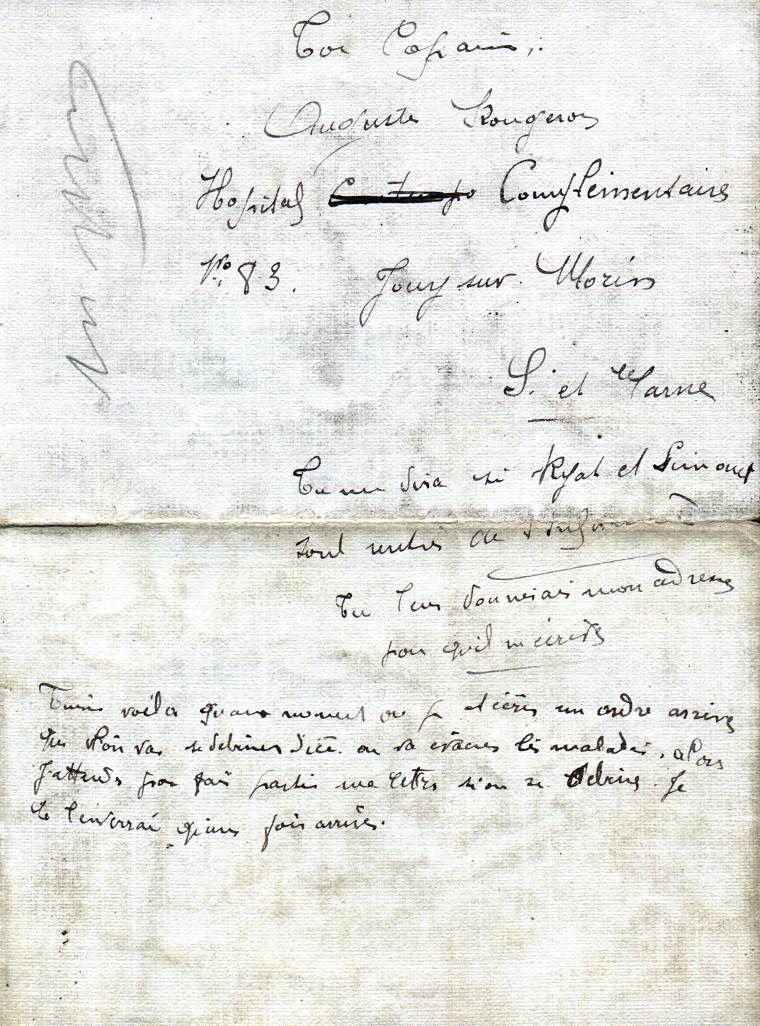 Ton Copain,.
Auguste Rougeron
Hospital Complementaire
No 83. Jouy sur Morin
S. et Marne
Tu me dira si et Simonet
sont rentrés de
Tu leur donnerais mon adresse
pour qu'il m'écrive
voila qu'au moment ou je t'écris un ordre arrive
que l'on vas se debiner d'ici. on va évacuer les malades, alors
J'attends pour fair partir ma lettre si on se debine. Je
te l'enverrai qu'une fois arrivés.